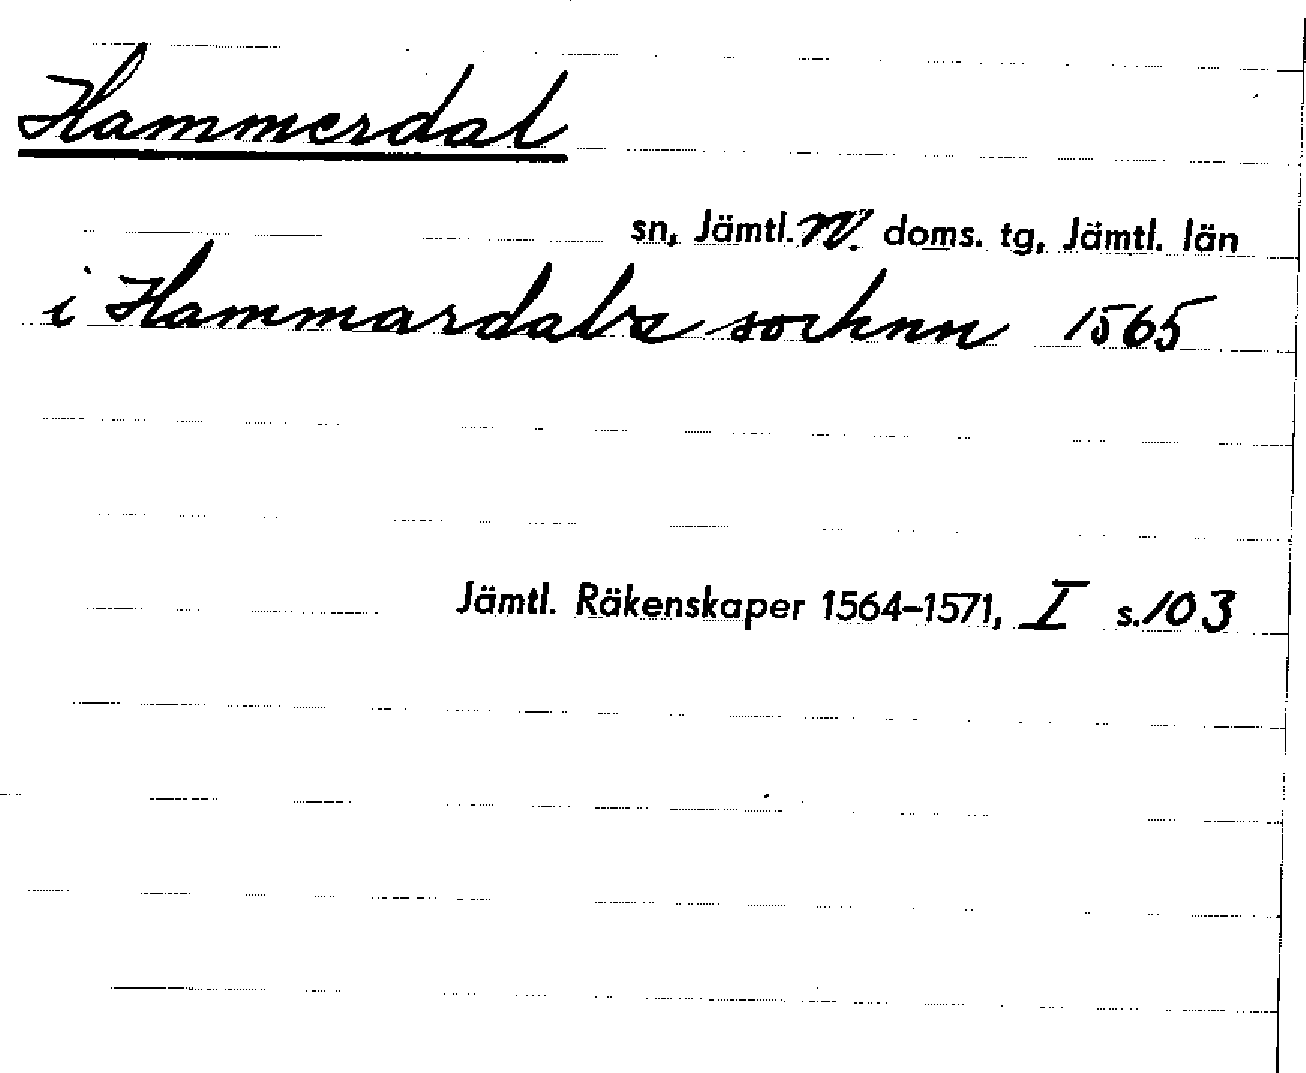 Hammerdal
sn, Jämtl. N. doms. tg, Jämtl. län
i Hammardals sochnn 1565
Jämtl. Räkenskaper 1564-1571, I s. 103